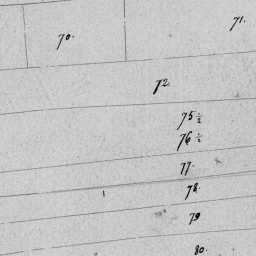 71.
70.
72
75 ½
76 ½
77.
78.
79
80.